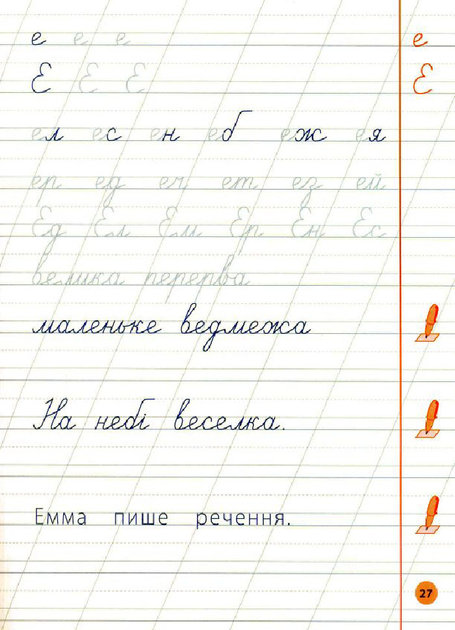 е е е е
Е Е Е Е
ел ес ен еб еж ея
ер ед еч ет ез ей
Ед Ел Ем Ер Ен Ес
велика перерва
маленьке ведмежа
На небі веселка.
Емма пише речення.
27